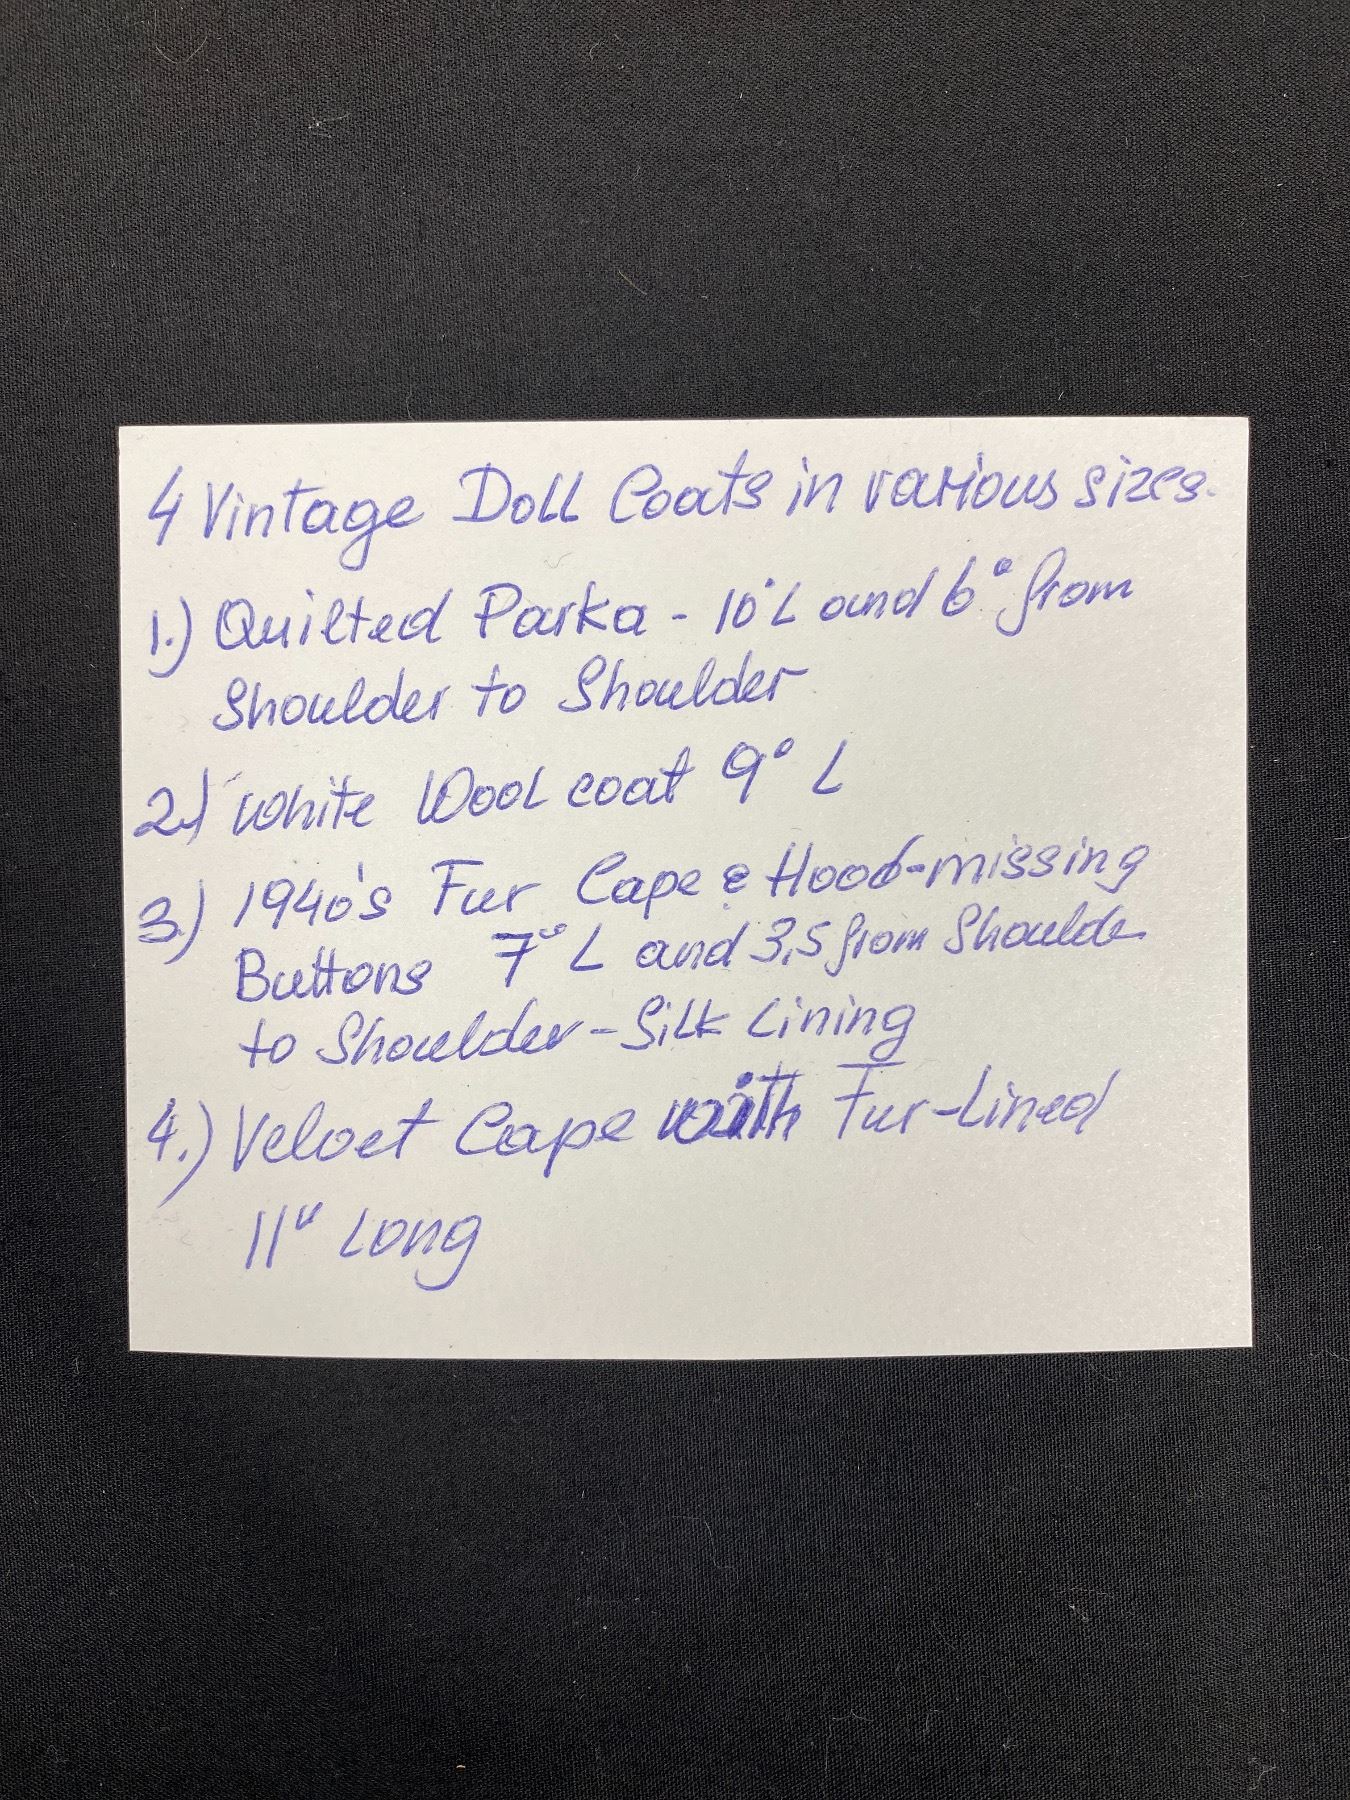 4 Vintage Doll Coats in various sizes.
1.) Quilted Parka - 10" L and 6" from
Shoulder to Shoulder
2.) White Wool coat 9" L
3.) 1940's Fur Cape & Hood-missing
Buttons 7" L and 3,5 from Shoulde
to Shoulder-Silk Lining
4.) Velvet Cape with Fur-Lined
11" Long